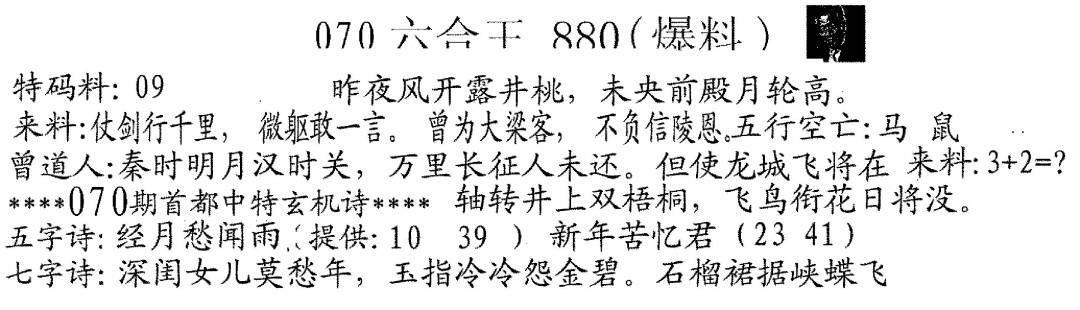 070 六合王 880(爆料)
特码料: 09 昨夜风开露井桃，未央前殿月轮高。
来料:仗剑行千里， 微躯敢一言。 曾为大梁客， 不负信陵恩。五行空亡:马 鼠
曾道人:秦时明月汉时关，万里长征人未还。但使龙城飞将在 来料:3+2=?
****070期首都中特玄机诗**** 轴转井上双梧桐，飞鸟衔花日将没。
五字诗: 经月愁闻雨.(提供: 10 39 ) 新年苦忆君 (23 41)
七字诗: 深闺女儿莫愁年，玉指冷冷怨金碧。石榴裙据峡蝶飞